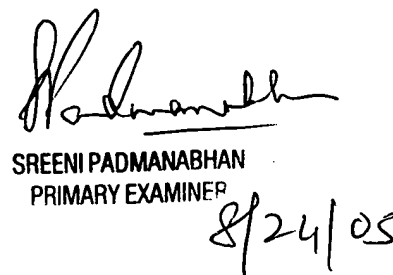 SPadmanabhan
SREENI PADMANABHAN
PRIMARY EXAMINER
8/24/05